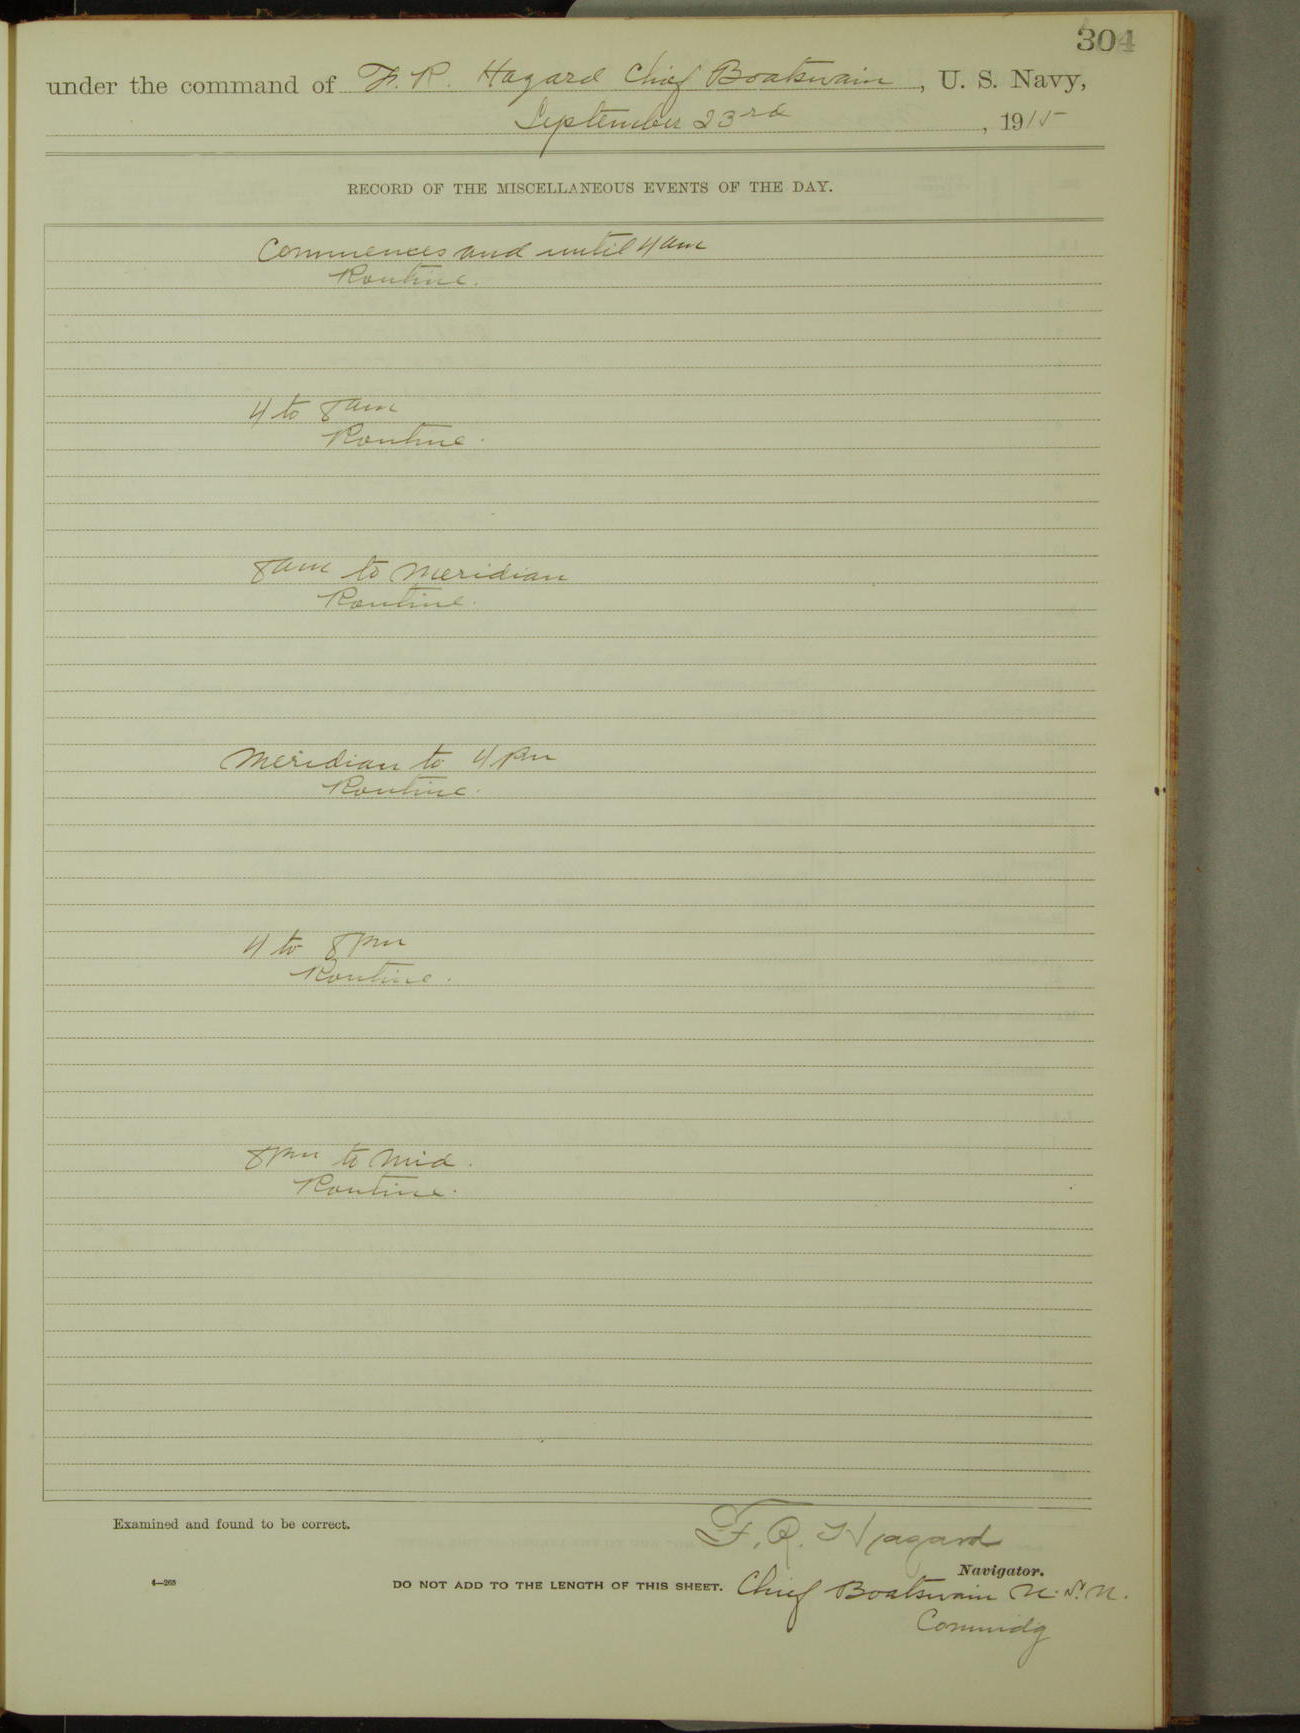 304
under the command of F. R. Hagard Chief Boatswain, U. S. Navy,
September 23rd, 1915
RECORD OF THE MISCELLANEOUS EVENTS OF THE DAY.
Commences and until 4 am
Routine.
4 to 8 am
Routine.
8 am to Meridian
Routine.
Meridian to 4 pm
Routine.
4 to 8 pm
Routine.
8 pm to Mid.
Routine.
Examined and found to be correct.
F. R. Hagard
Navigator.
4—265
DO NOT ADD TO THE LENGTH OF THIS SHEET.
Chief Boatswain U. S. N.
Commidg